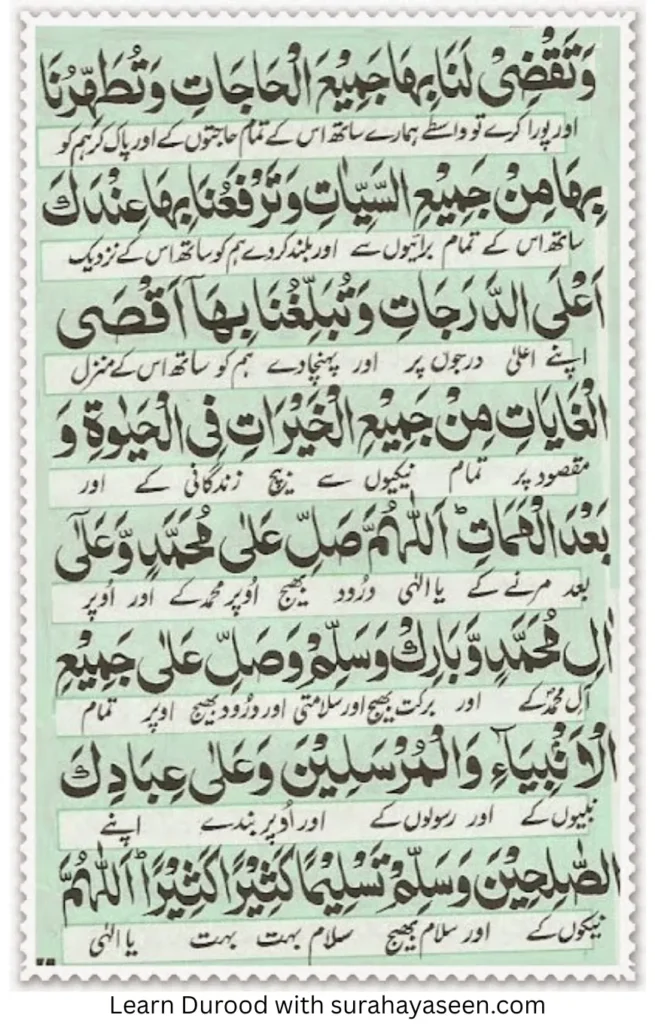 وَتَقْضِىْ لَنَا بِهَا جَمِيْعَ الْحَاجَاتِ وَتُطَهِّرُنَا
اور پورا کرے تو واسطے ہمارے ساتھ اس کے تمام حاجتوں کے اور پاک کر ہم کو
بِهَا مِنْ جَمِيْعِ السَّيِّاٰتِ وَتَرْفَعُنَا بِهَا عِنْدَكَ
ساتھ اس کے تمام برائیوں سے اور بلند کردے ہم کو ساتھ اس کے نزدیک
اَعْلَى الدَّرَجَاتِ وَتُبَلِّغُنَا بِهَآ اَقْصَى
اپنے اعلیٰ درجوں پر اور پہنچادے ہم کو ساتھ اس کے منزل
الْغَايَاتِ مِنْ جَمِيْعِ الْخَيْرَاتِ فِى الْحَيٰوةِ وَ
مقصود پر تمام نیکیوں سے بیچ زندگانی کے اور
بَعْدَ الْمَمَاتِ ؕ اَللّٰهُمَّ صَلِّ عَلٰى مُحَمَّدٍ وَّعَلٰٓى
بعد مرنے کے یا الٰہی درُود بھیج اُوپر محمد کے اور اُوپر
اٰلِ مُحَمَّدٍ وَّبَارِكْ وَسَلِّمْ وَصَلِّ عَلٰى جَمِيْعِ
آل محمدؐ کے اور برکت بھیج اور سلامتی اور درُود بھیج اوپر تمام
الْاَنْۢبِيَآءِ وَالْمُرْسَلِيْنَ وَعَلٰى عِبَادِكَ
نبیوں کے اور رسولوں کے اور اُوپر بندے اپنے
الصّٰلِحِيْنَ وَسَلِّمْ تَسْلِيْمًا كَثِيْرًا كَثِيْرًا ؕ اَللّٰهُمَّ
نیکوں کے اور سلام بھیج سلام بہت بہت یا الٰہی
Learn Durood with surahayaseen.com